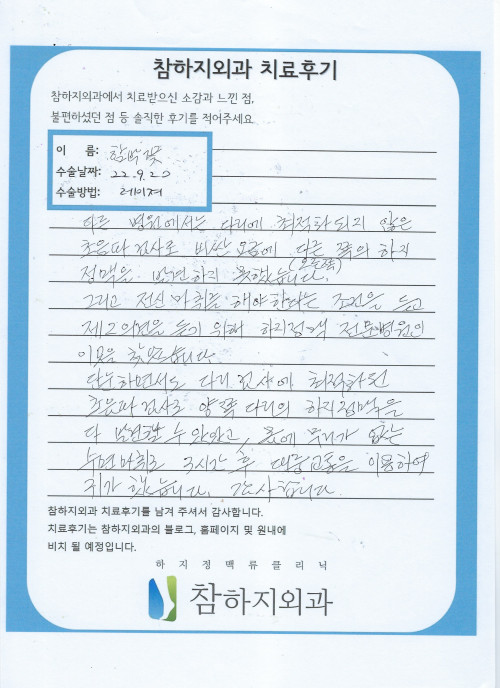 참하지외과 치료후기
참하지외과에서 치료받으신 소감과 느낀 점,
불편하셨던 점 등 솔직한 후기를 적어주세요
이 름: 함박꽃
수술날짜: 22.9.20
수술방법: 레이져
다른 병원에서는 다리에 최적화되지 않은
초음파 검사로 비싼 요금에 다른 쪽의 하지
(오른쪽)
정맥은 발견하지 못했습니다.
그리고 전신마취를 해야한다는 조건을 듣고
제2의견을 듣기 위해 하지정맥 전문병원인
이곳을 찾았습니다.
단순하면서도 다리검사에 최적화된
초음파검사로 양쪽 다리의 하지정맥을
다 발견할 수 있었고, 몸에 무리가 없는
수면마취로 3시간 후 대중교통을 이용하여
귀가 했습니다. 감사합니다.
참하지외과 치료후기를 남겨 주셔서 감사합니다.
치료후기는 참하지외과의 블로그, 홈페이지 및 원내에
비치 될 예정입니다.
하지정맥류클리닉
참하지외과